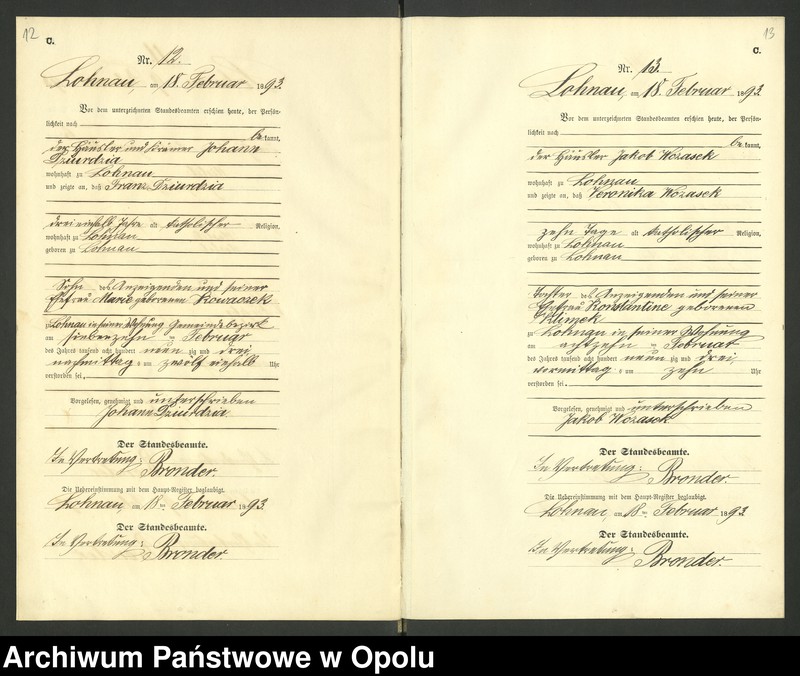 12
C.
Nr. 12.
Lohnau, am 18. Februar 1893.
Vor dem unterzeichneten Standesbeamten erschien heute, der Persön-
lichkeit nach
be kannt,
der Häusler und Krämer Johann
Dziurdzia
wohnhaft zu Lohnau
und zeigte an, daß Franz Dziurdzia
drei einhalb Jahre alt katholischer Religion,
wohnhaft zu Lohnau
geboren zu Lohnau
Sohn des Anzeigenden und seiner
Ehefrau Marie geborenen Kowaczek
Lohnau in seiner Wohnung Gemeindebezirk
am siebenzehn ten Februar
des Jahres tausend acht hundert neun zig und drei
nachmittag s um zwölf einhalb Uhr
verstorben sei.
Vorgelesen, genehmigt und unterschrieben
Johann Dziurdzia.
Der Standesbeamte.
In Vertretung:
Bronder
Die Uebereinstimmung mit dem Haupt-Register beglaubigt.
Lohnau, am 18 ten Februar 1893.
Der Standesbeamte.
In Vertretung:
Bronder.
13
C.
Nr. 13.
Lohnau, am 18. Februar 1893.
Vor dem unterzeichneten Standesbeamten erschien heute, der Persön-
lichkeit nach
be kannt,
der Häusler Jakob Wozasek
wohnhaft zu Lohnau
und zeigte an, daß Veronika Wozasek
zehn Tage alt katholischer Religion,
wohnhaft zu Lohnau
geboren zu Lohnau
Tochter des Anzeigenden und seiner
Ehefrau Konstantine geborenen
Klimek
zu Lohnau in seiner Wohnung
am achtzehn ten Februar
des Jahres tausend acht hundert neun zig und drei
vormittag s um zehn Uhr
verstorben sei.
Vorgelesen, genehmigt und unterschrieben
Jakob Wozasek
Der Standesbeamte.
In Vertretung:
Bronder.
Die Uebereinstimmung mit dem Haupt-Register beglaubigt.
Lohnau, am 18 ten Februar 1893.
Der Standesbeamte.
In Vertretung:
Bronder.
Archiwum Państwowe w Opolu